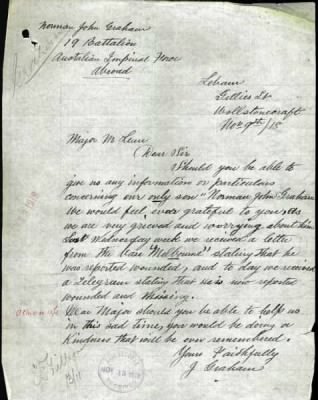 Norman John Graham
19 Battalion
Australian Imperial Force
Abroad
Gillies St
Wollstonecraft
Nov 9th/15
Major McLean
Dear Sir
Should you be able to
give us any information or particulars
concerning our only son "Norman John Graham
We would feel ever grateful to you, as
we are very grieved and worrying about him
Last Wednesday week we received a letter
from the base Melbourne stating that he
was reported wounded, and to day we received
a Telegram stating that he is now reported
wounded and missing.
Dear Major should you be able to help us
in this sad time, you would be doing a
Kindness that will be ever remembered.
Yours Faithfully
J Graham